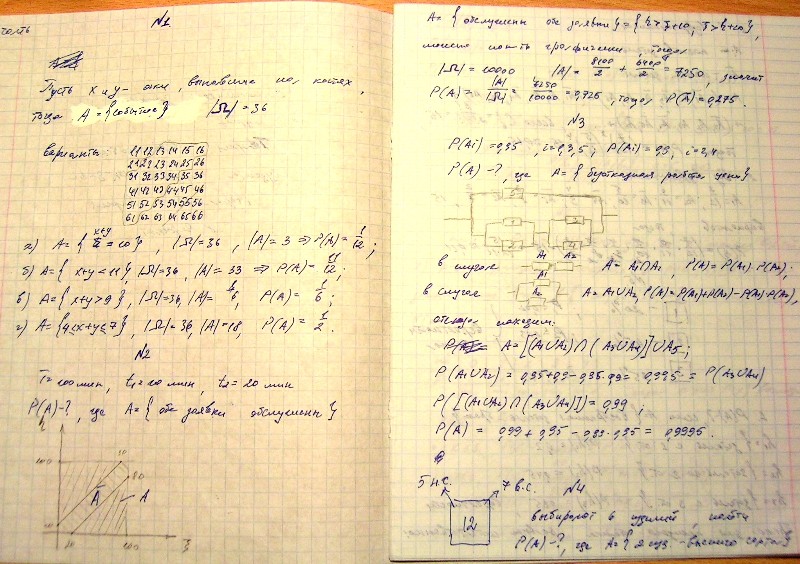 N1
Пусть x и y - очки, выпавшие на костях,
тогда A = {событие} |Ω| = 36
варианты
11 12 13 14 15 16
21 22 23 24 25 26
31 32 33 34 35 36
41 42 43 44 45 46
51 52 53 54 55 56
61 62 63 64 65 66
а) A = { x+y = 10}, |Ω|=36, |A|=3 ⇒ P(A) = 1/12;
б) A = { x+y < 11}, |Ω|=36, |A|=33 ⇒ P(A) = 11/12;
в) A = {x+y > 9}, |Ω|=36, |A|= 6, P(A) = 1/6;
г) A = {4<x+y≤7}, |Ω|=36, |A|=18, P(A) = 1/2.
N2
T=100 мин, t₁=10 мин, t₂=20 мин
P(A)-?, где A={ обе заявки обслужены }
A = { обслужены обе заявки} =
можно найти графически, тогда
|Ω| = 10000 |A| = 8100/2 + 6400/2 = 7250, значит
P(A) = |A|/|Ω| = 7250/10000 = 0,725, тогда P(Ā) = 0,275.
N3
P(Ai) = 0,95, i=1,3,5, P(Ai) = 0,9, i=2,4
P(A)-?, где A={ безотказная работа цепи}
в случае A₁ A₂ A = A₁∩A₂, P(A) = P(A₁)·P(A₂);
в случае A₁ A₂ A = A₁∪A₂, P(A) = P(A₁)+P(A₂)-P(A₁)·P(A₂),
отсюда находим:
A = [(A₁∪A₂)∩(A₃∪A₄)]∪A₅;
P(A₁∪A₂) = 0,95+0,9-0,95·0,9 = 0,995 = P(A₃∪A₄)
P([(A₁∪A₂)∩(A₃∪A₄)]) = 0,99;
P(A) = 0,99 + 0,95 - 0,99·0,95 = 0,9995.
N4
5 н.с. 7 в.с.
12
выбирают 6 изделий, найти
P(A)-?, где A={ 2 изд. - высшего сорта}